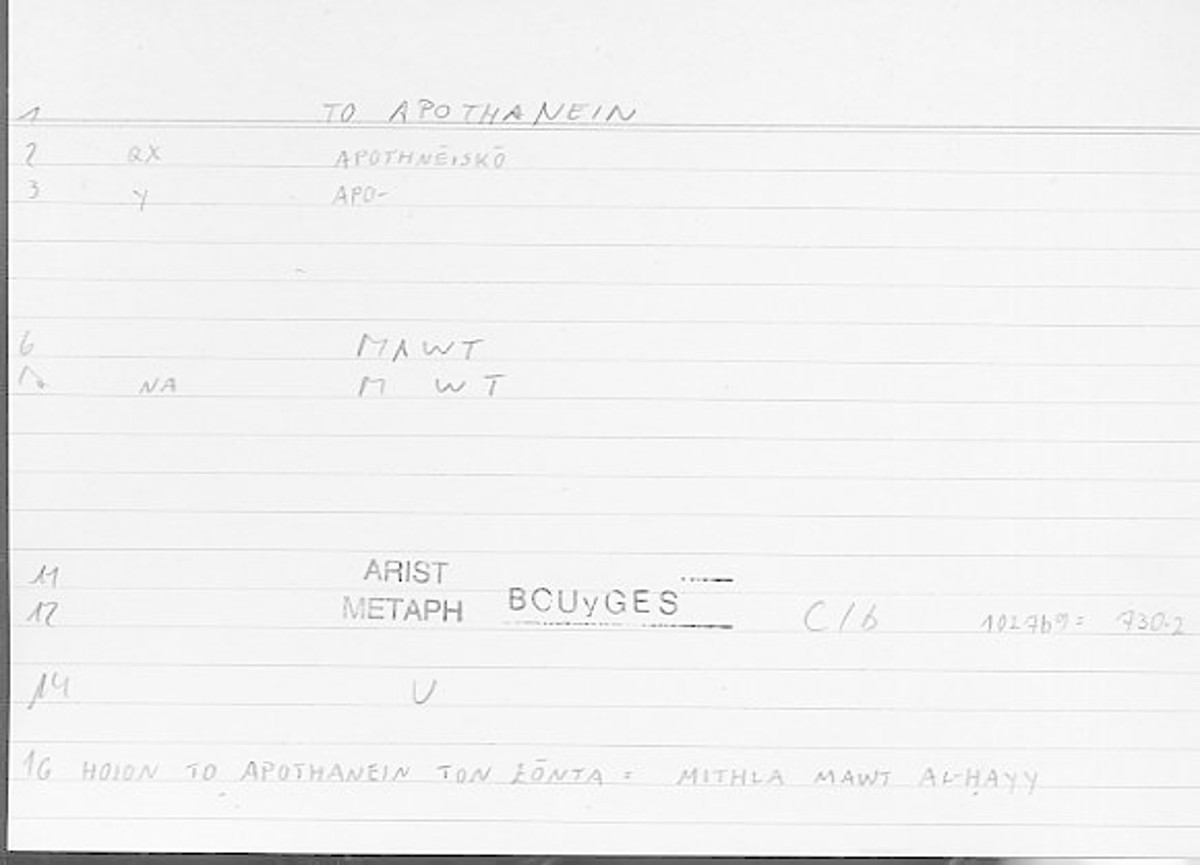 1 TO APOTHANEIN
2 QX APOTHNĒISKŌ
3 Y APO-
6 MAWT
NA M WT
11 ARIST
12 METAPH BOUYGES C/b 1027b9= 730.2
14 U
16 HOION TO APOTHANEIN TON ZŌNTA = MITHLA MAWT AL-ḤAYY